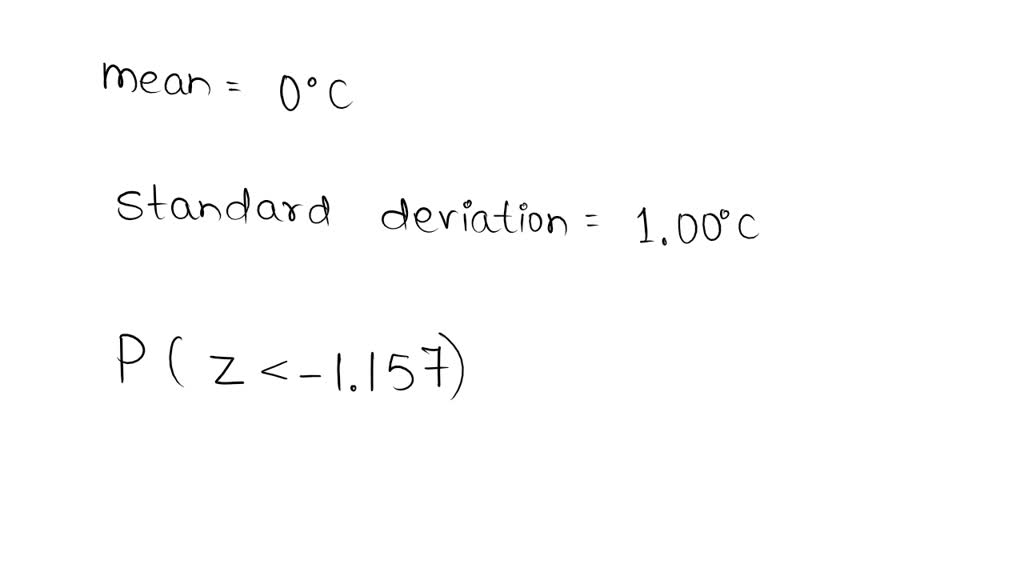 mean = 0°C
standard deviation = 1.00°C
P ( z < -1.157)